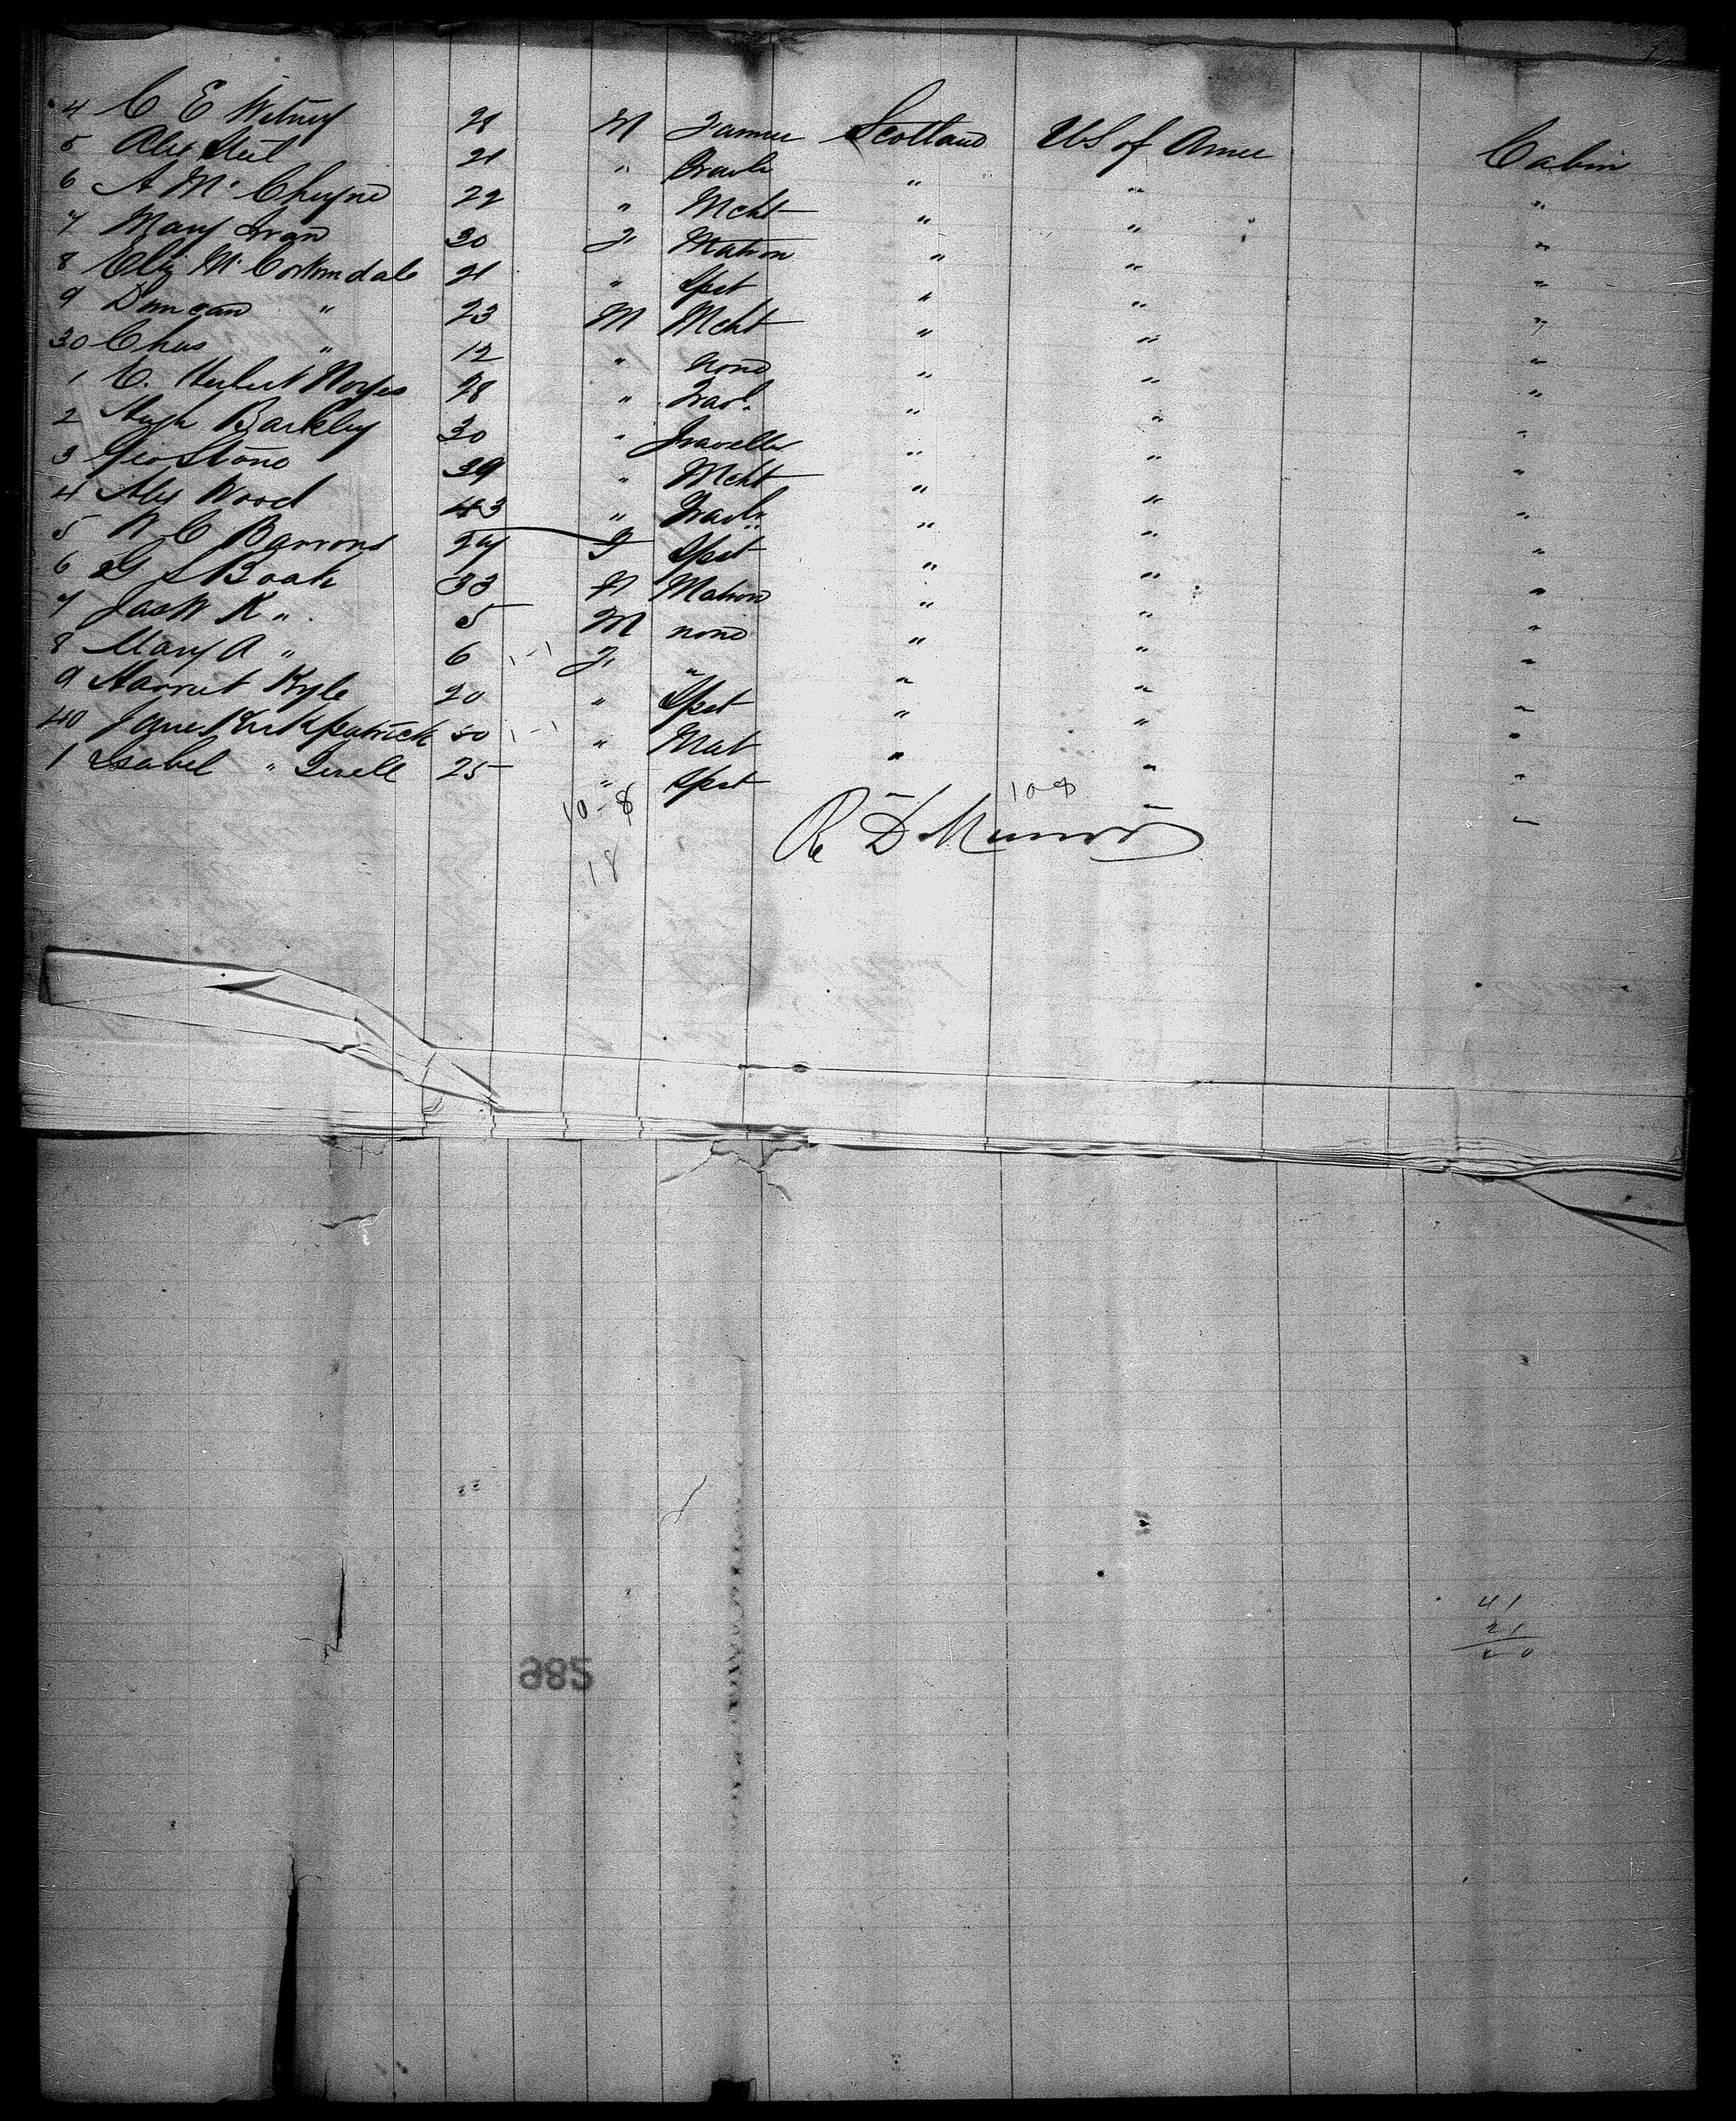 4 C E Witney 28 M Farmer Scotland US of Amer Cabin
5 Alex Steel 21 " " " "
6 A Mc Cheyne 22 " Mcht " " "
7 Mary 30 F Matron " " "
8 Eliz Mc Corkindale 21 " Spst " " "
9 Duncan " 23 M Mcht " " "
30 Chas " 12 " none " " "
1 C. Herbert Noyes 28 " Travl. " " "
2 Hugh Barkley 30 " Traveller " " "
3 Geo Stone 39 " Mcht " " "
4 Alex Wood 43 " Travlr " " "
5 N C Barrons 24 F Spst " " "
6 G S Boak 33 Matron " " "
7 Jas W K " 5 M none " " "
8 Mary A " 6 F " " " "
9 Harriet Kyle 20 " Spst " " "
40 Jane Kirkpatrick 50 " Mat " " "
1 Isabel " 25 " Spst " " "
10-8 10-8
R D Munro
18
41
21
20
982